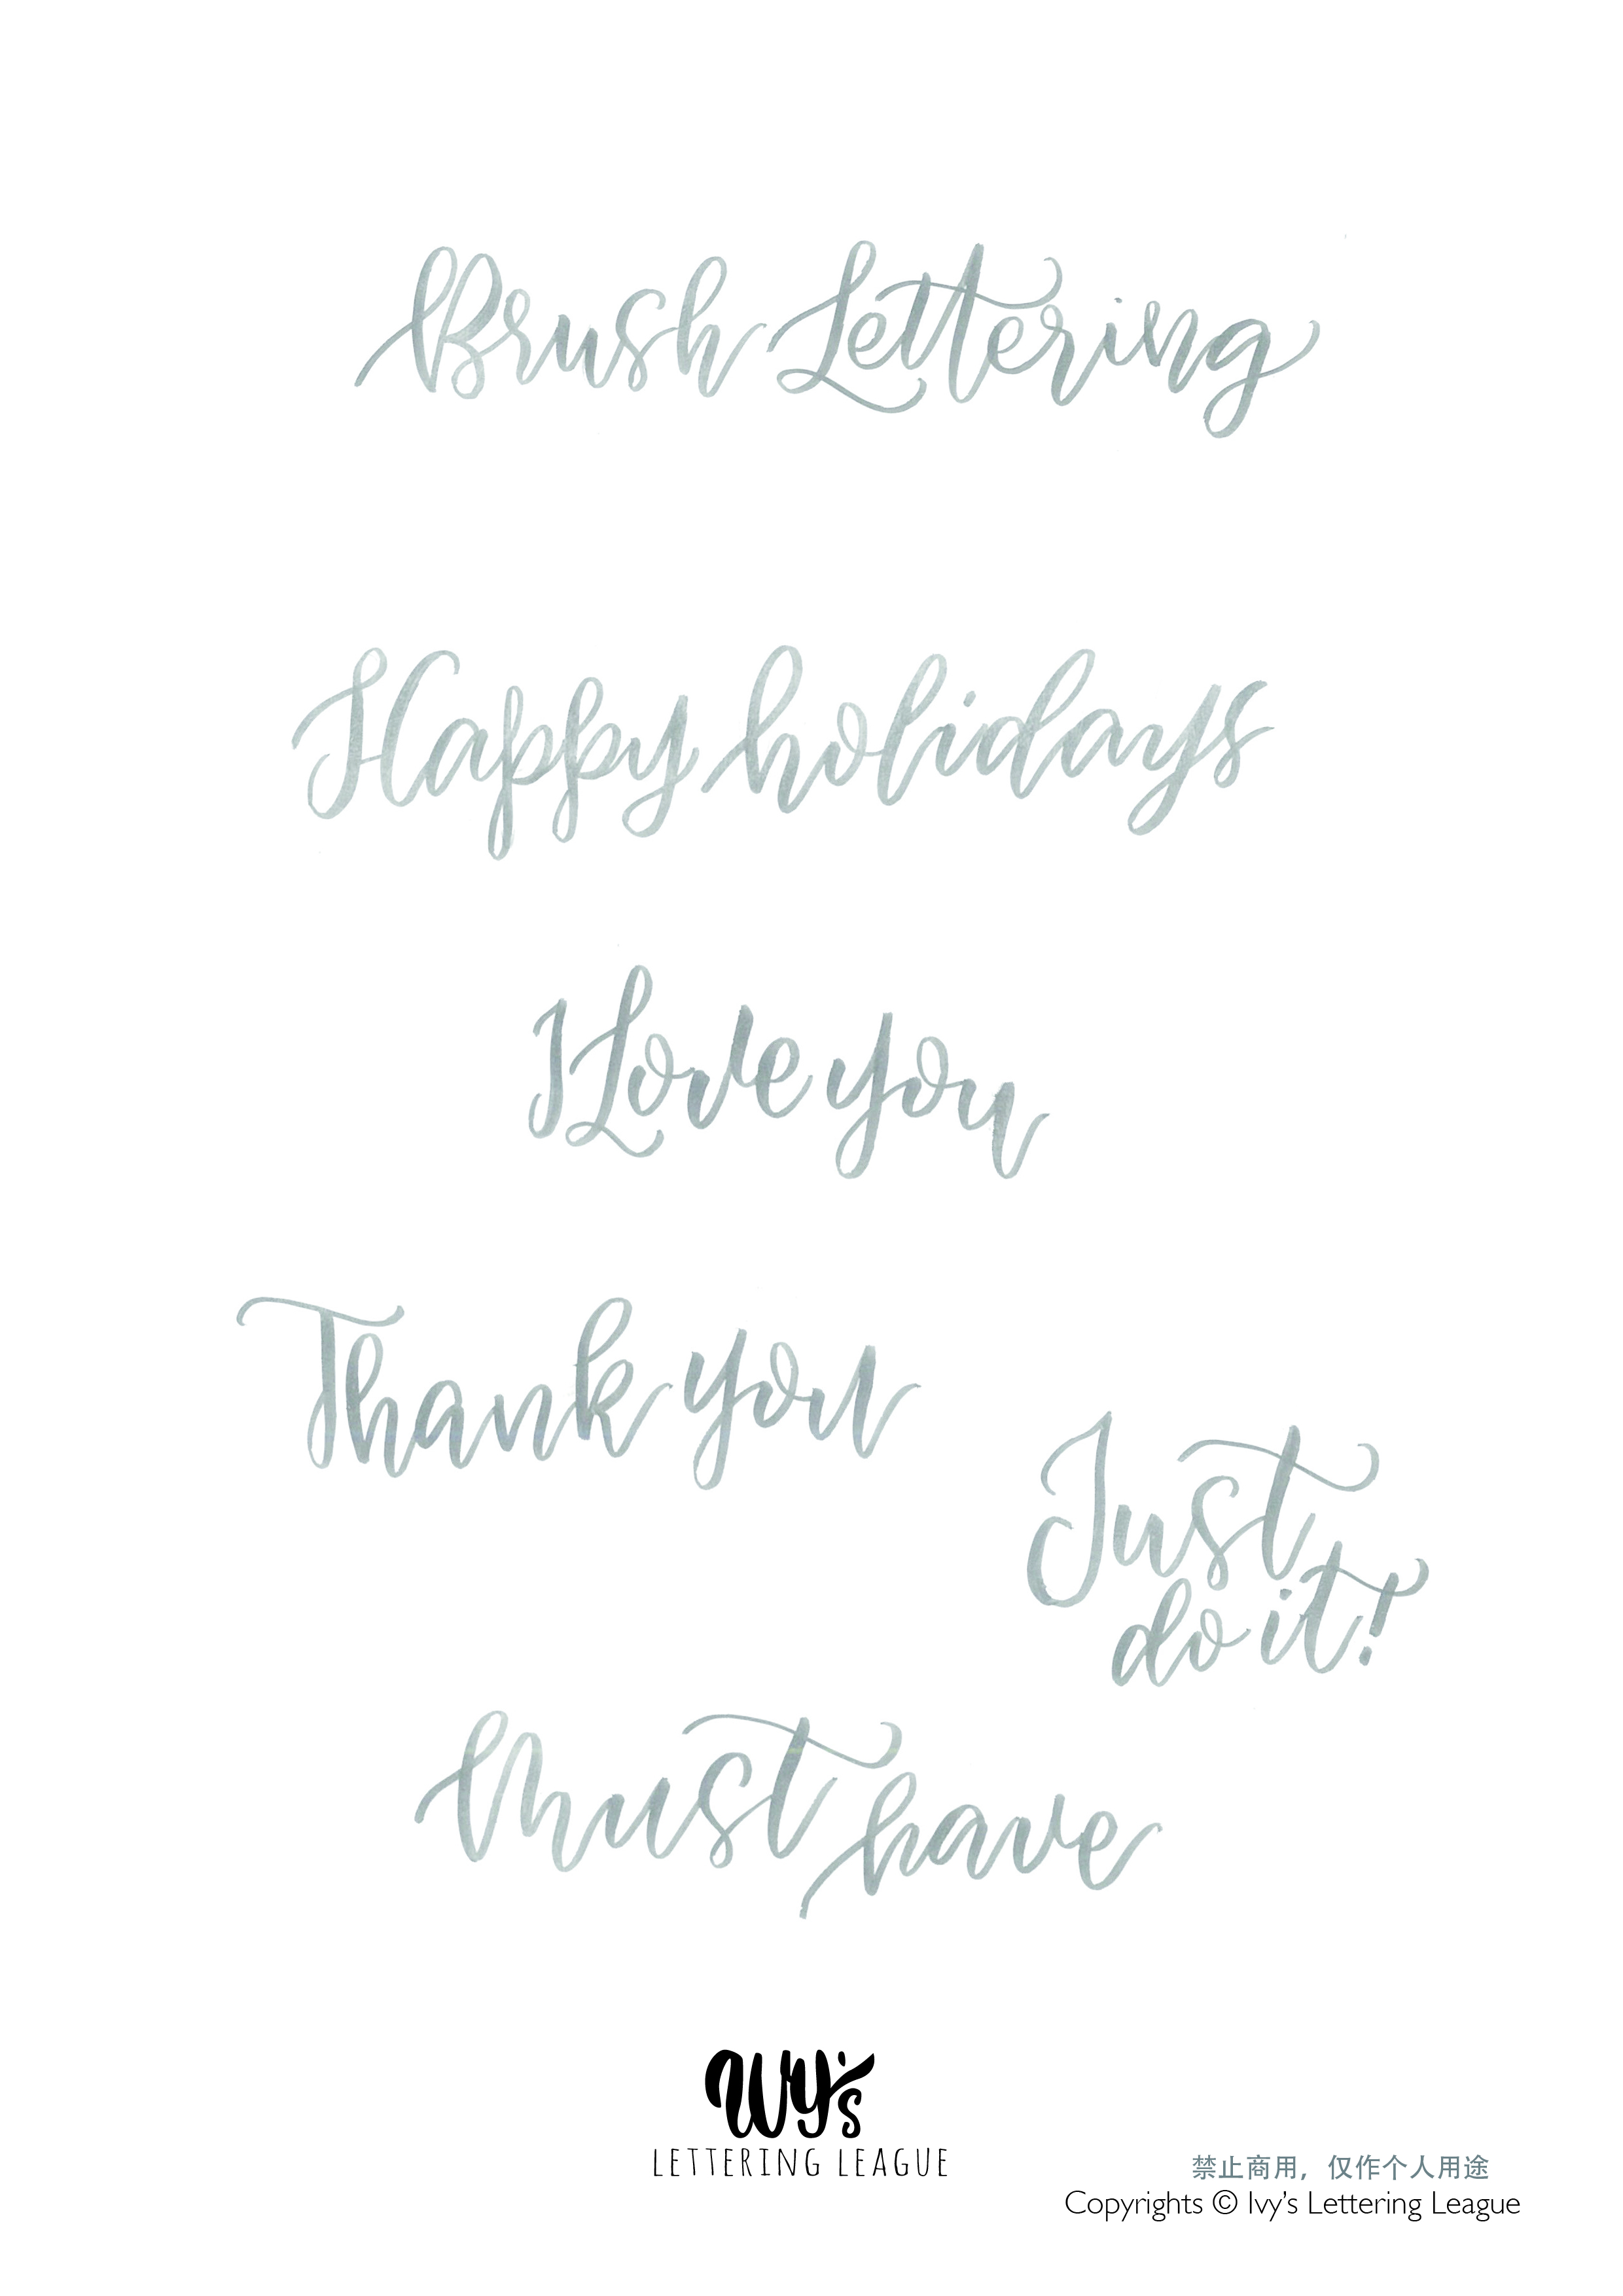 Brush Lettering
Happy holidays
I Love you
Thank you
Just
do it!
Must have
Ivy's
LETTERING LEAGUE
禁止商用，仅作个人用途
Copyrights © Ivy's Lettering League